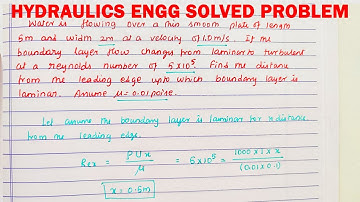 HYDRAULICS ENGG SOLVED PROBLEM
Water is flowing over a thin smooth plate of length
5m and width 2m at a velocity of 1.0m/s. If the
boundary layer flow changes from laminar to turbulent
at a reynolds number of 5×10⁵. Find the distance
from the leading edge upto which boundary layer is
laminar. Assume μ = 0.01 poise.
Let assume the boundary layer is laminar for x distance
from the leading edge.
Rex = ρUx / μ = 5×10⁵ = 1000 × 1 × x / (0.01×0.1)
x = 0.5m